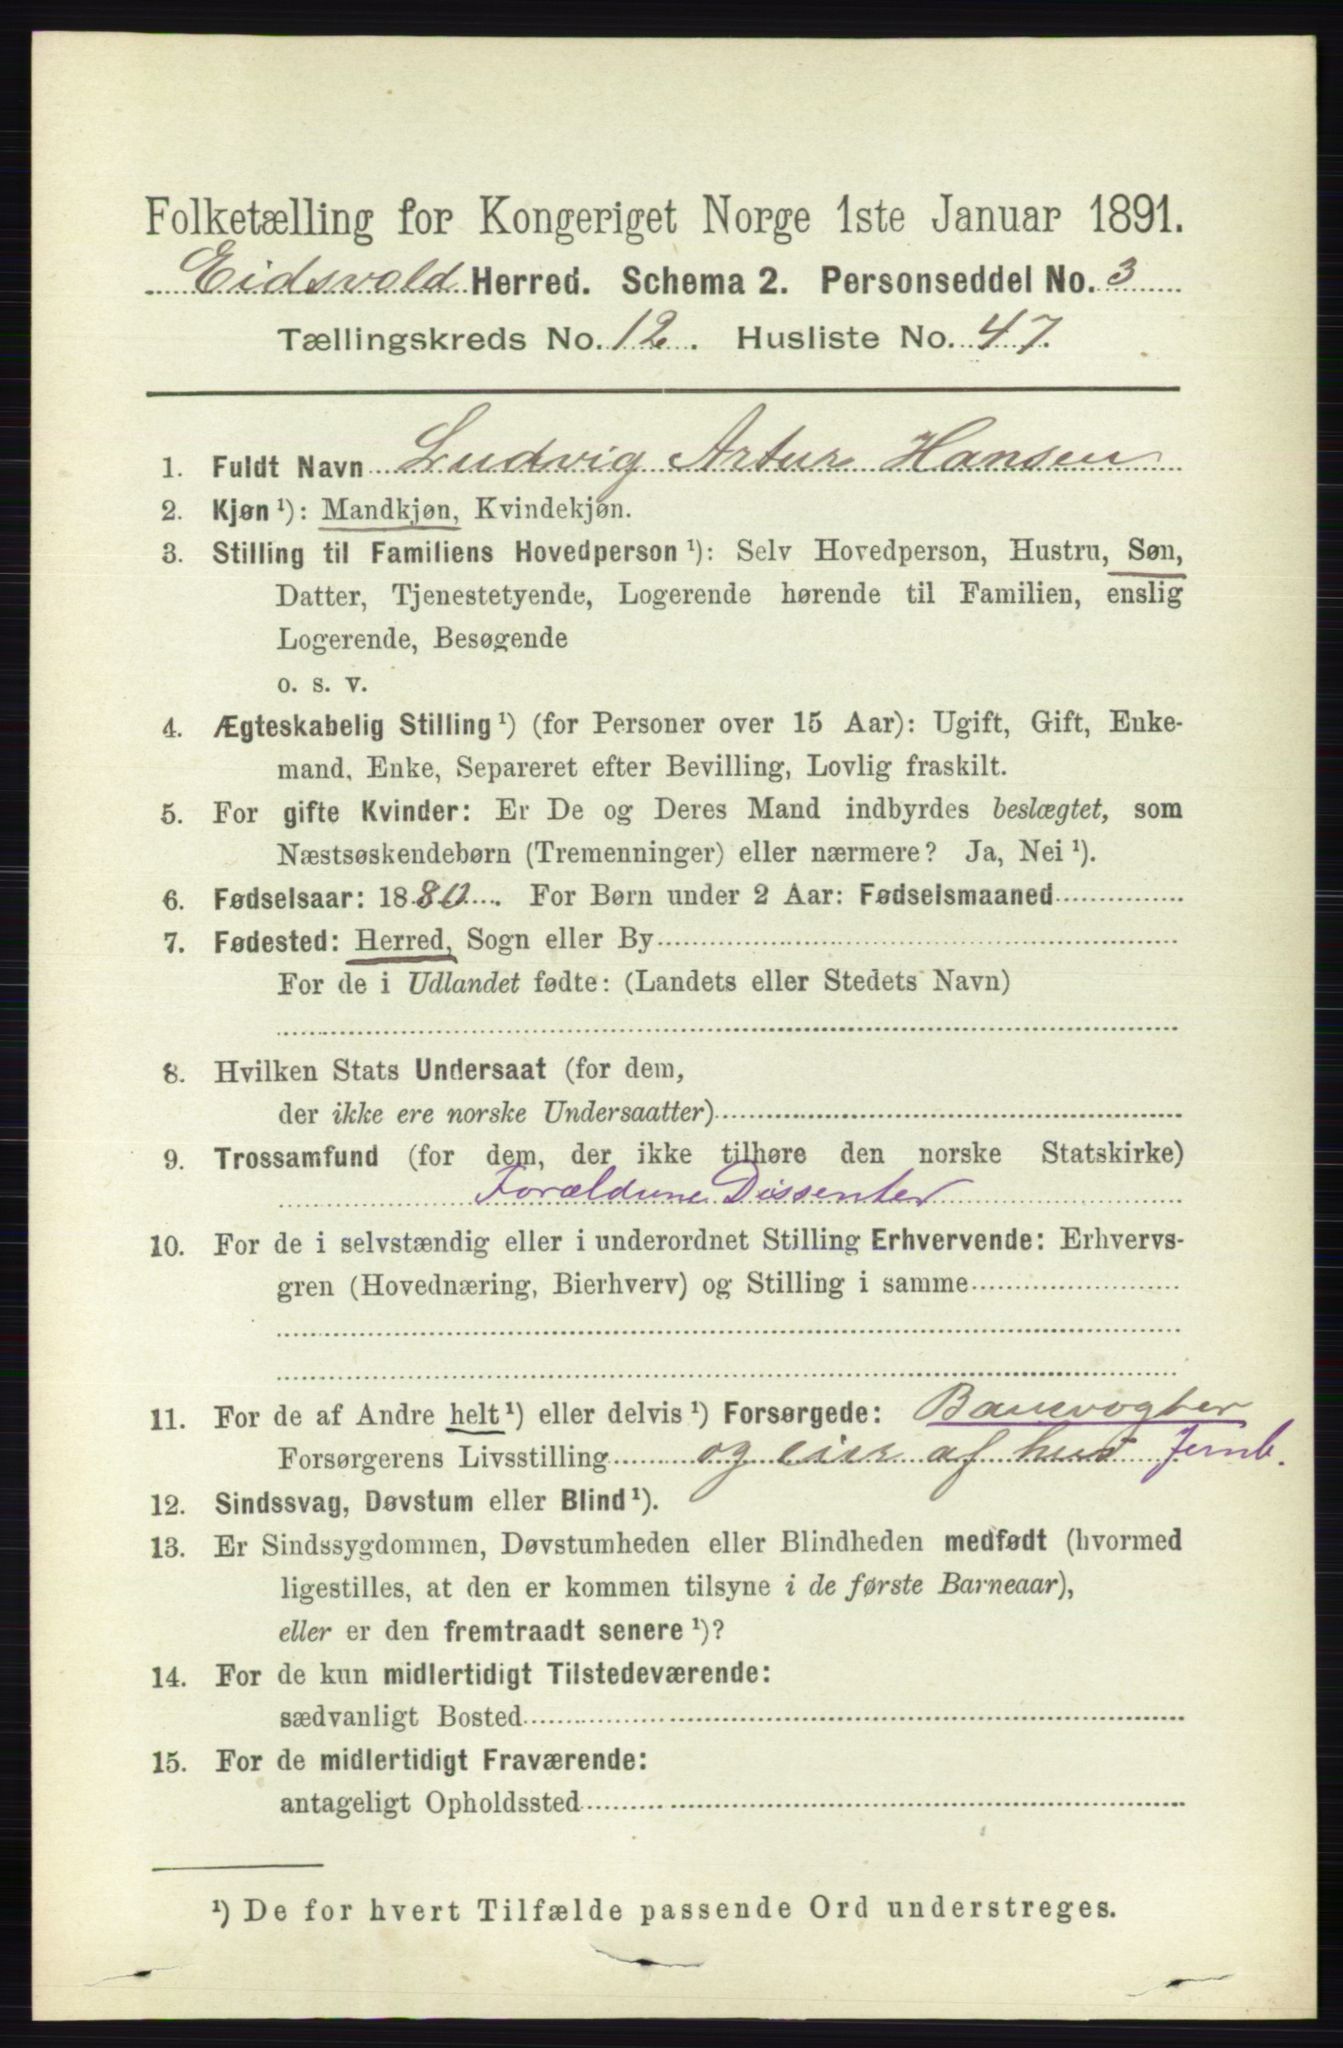 Folketælling for Kongeriget Norge 1ste Januar 1891.
Eidsvold Herred. Schema 2. Personseddel No. 3
Tællingskreds No. 12. Husliste No. 47.
1. Fuldt Navn Ludvig Artur Hansen
2. Kjøn ¹): Mandkjøn, Kvindekjøn.
3. Stilling til Familiens Hovedperson ¹): Selv Hovedperson, Hustru, Søn,
Datter, Tjenestetyende, Logerende hørende til Familien, enslig
Logerende, Besøgende
o. s. v.
4. Ægteskabelig Stilling ¹) (for Personer over 15 Aar): Ugift, Gift, Enke-
mand, Enke, Separeret efter Bevilling, Lovlig fraskilt.
5. For gifte Kvinder: Er De og Deres Mand indbyrdes beslægtet, som
Næstsøskendebørn (Tremenninger) eller nærmere? Ja, Nei ¹).
6. Fødselsaar: 1880. For Børn under 2 Aar: Fødselsmaaned
7. Fødested: Herred, Sogn eller By
For de i Udlandet fødte: (Landets eller Stedets Navn)
8. Hvilken Stats Undersaat (for dem,
der ikke ere norske Undersaatter)
9. Trossamfund (for dem, der ikke tilhøre den norske Statskirke)
Forældrene Dissenter
10. For de i selvstændig eller i underordnet Stilling Erhvervende: Erhvervs-
gren (Hovednæring, Bierhverv) og Stilling i samme
11. For de af Andre helt ¹) eller delvis ¹) Forsørgede: Banevogter
Forsørgerens Livsstilling og eier af hus Jernb.
12. Sindssvag, Døvstum eller Blind ¹).
13. Er Sindssygdommen, Døvstumheden eller Blindheden medfødt (hvormed
ligestilles, at den er kommen tilsyne i de første Barneaar),
eller er den fremtraadt senere ¹)?
14. For de kun midlertidigt Tilstedeværende:
sædvanligt Bosted
15. For de midlertidigt Fraværende:
antageligt Opholdssted
¹) De for hvert Tilfælde passende Ord understreges.